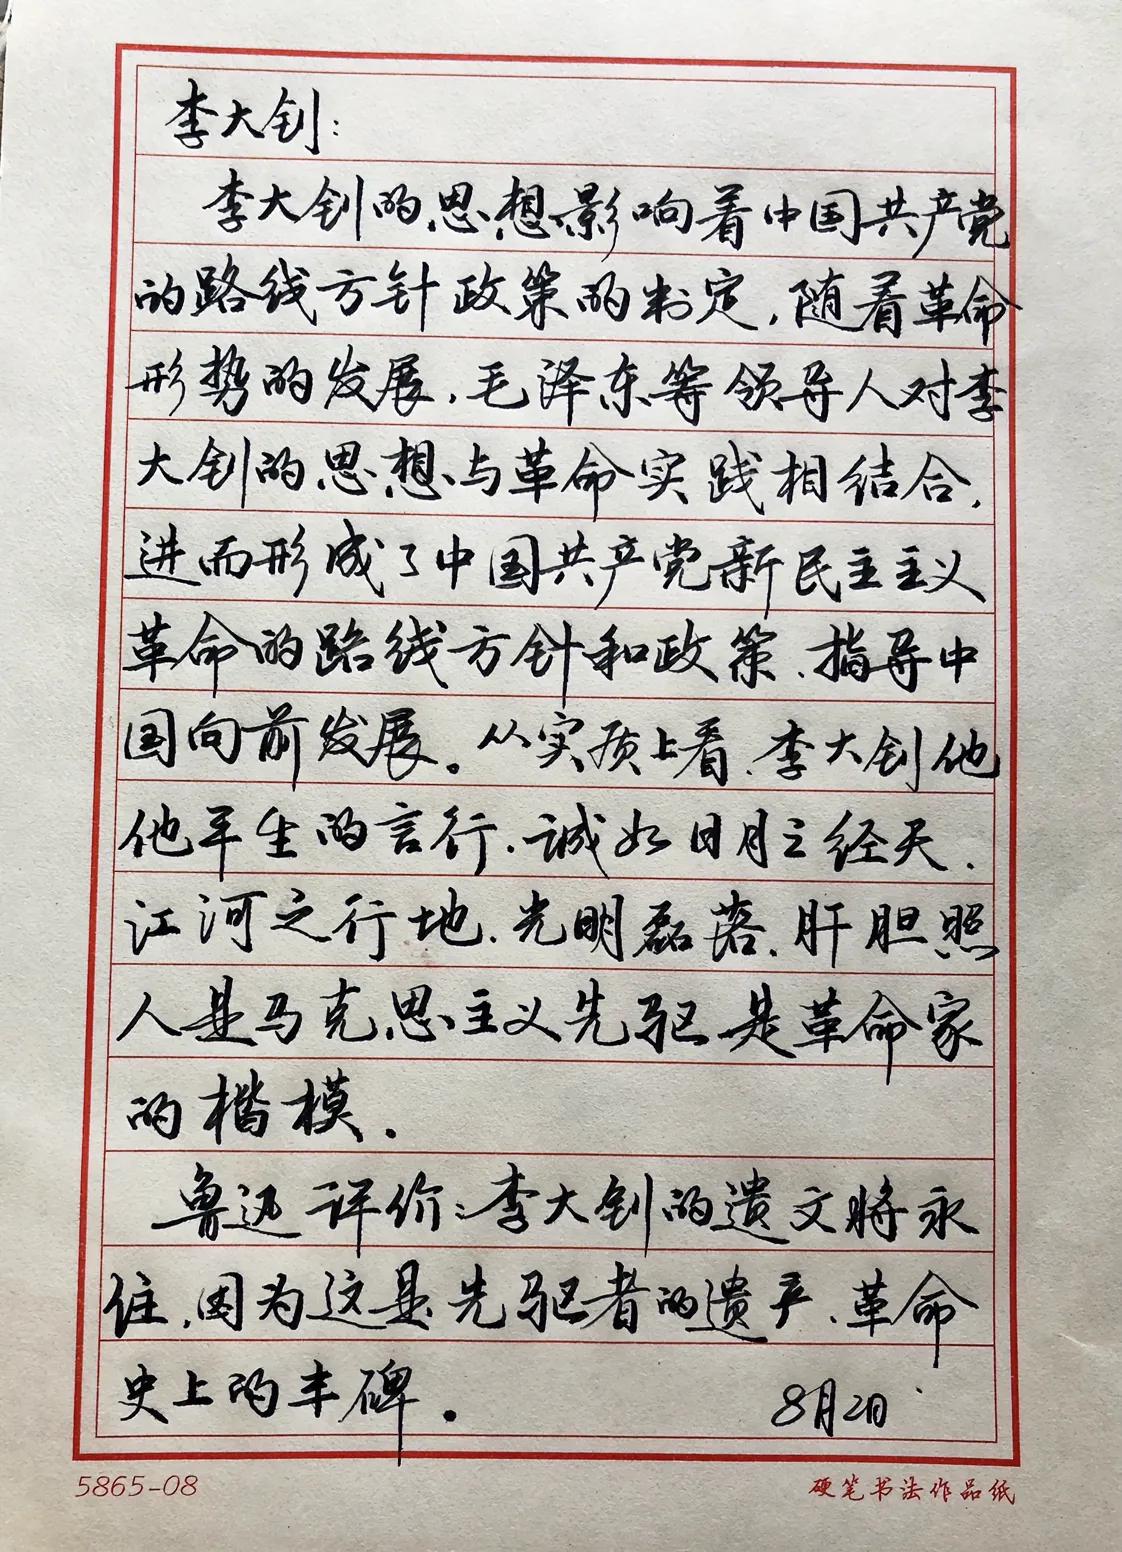 李大钊：
李大钊的思想影响着中国共产党
的路线方针政策的制定，随着革命
形势的发展，毛泽东等领导人对李
大钊的思想与革命实践相结合，
进而形成了中国共产党新民主主义
革命的路线方针和政策，指导中
国向前发展。从实质上看，李大钊他
他平生的言行，诚如日月之经天，
江河之行地，光明磊落，肝胆照
人是马克思主义先驱是革命家
的楷模．
鲁迅评价：李大钊的遗文将永
住，因为这是先驱者的遗产，革命
史上的丰碑．
8月2日
5865-08
硬笔书法作品纸